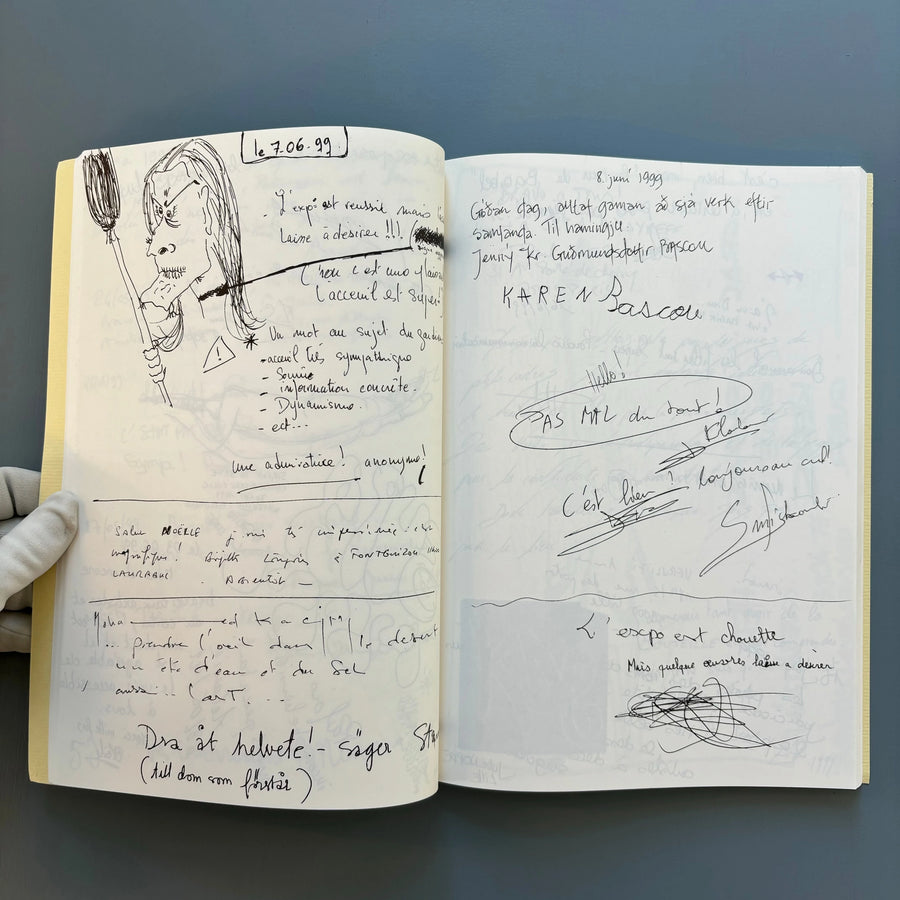 le 7.06.99
- L'expo est reussie mais
laine à desirer !!!. (
(non c'est une
l'acceuil est super
* Un mot au sujet du gardien
- acceuil très sympathique
- Sourire
- information concrète.
- Dynamisme.
- ect...
une admiratrice ! anonyme !
Salut NOËLLE
magnifique ! Brigitte à
A Bientôt _
... Prendre l'oeil dans le desert
un été d'eau et du Sel
aussi !! L'arT....
Dra åt helvete! - säger
(till dom som förstår)
8. juni 1999
Góðan dag, alltaf gaman að sjá verk eftir
samlanda. Til hamingju
Jenný Kr. Guðmundsdóttir PASCOU
KAREN Pascou
Hello !
PAS MAL du tout !
C'est bien ! toujours au cul !
L'expo est chouette
Mais quelque œuvres laisse a desirer